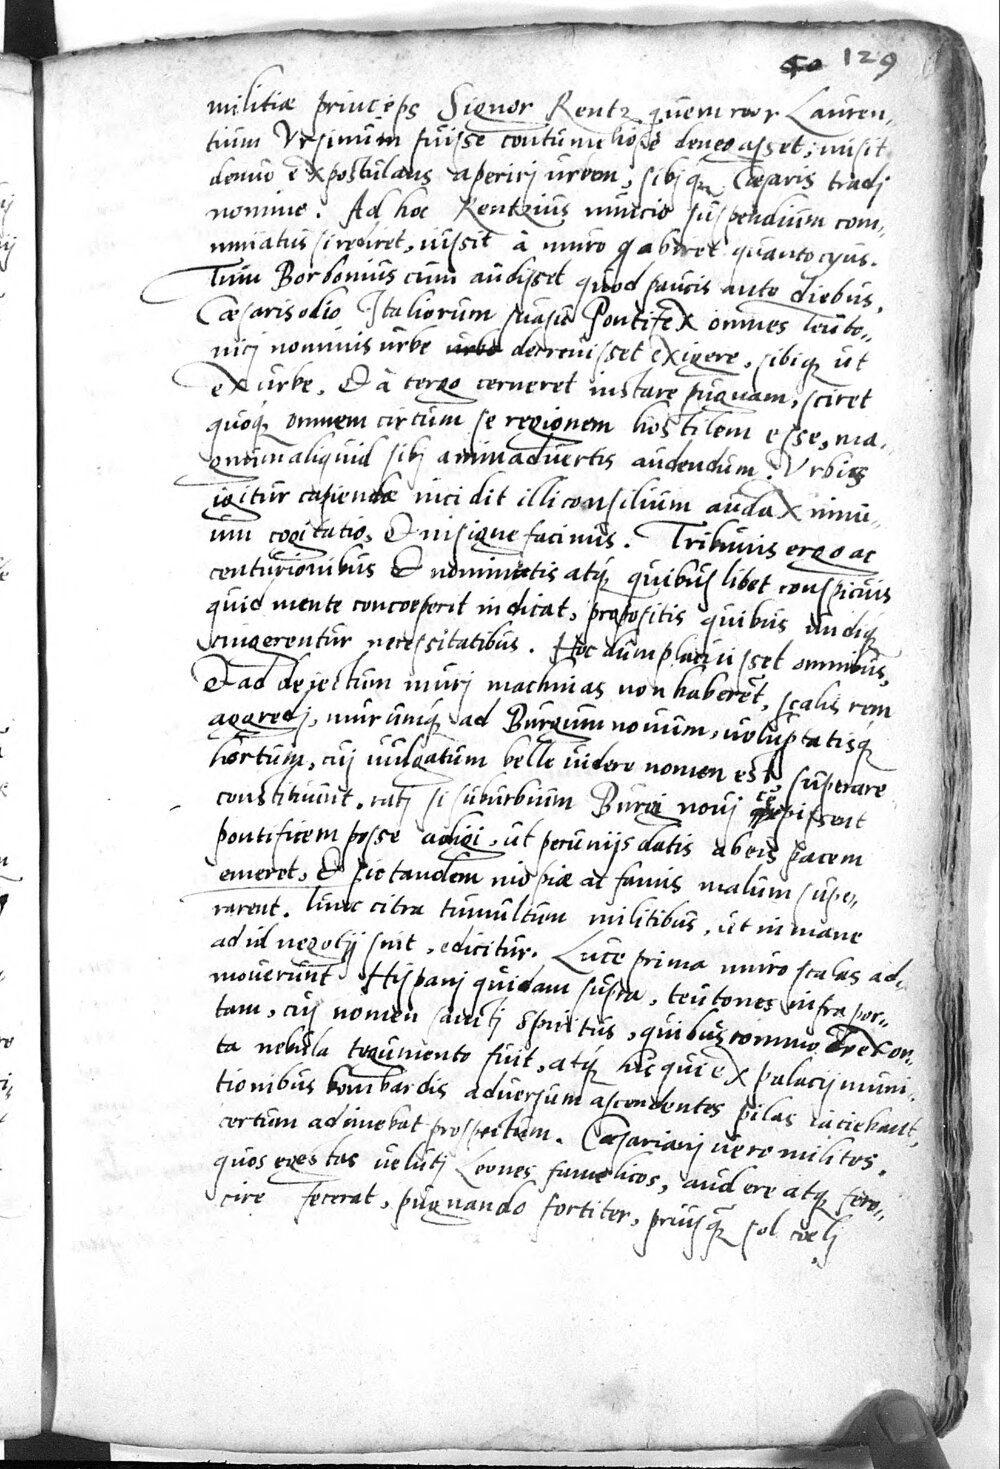 50 129
militiæ princeps Signor Rentz, quem reor Lauren„
tium Ursinum fuisse contumeliose denegasset; misit
denuo expostulans aperirj urbem, sibjq; Cæsaris tradj
nomine. Ad hoc Rentzius nuncio suspendium com„
minatus si rediret, iussit à muro q abiret quantocyus.
Tum Borbonius cum audisset quod paucis ante diebus,
Cæsaris odio Italiorum suasu Pontifex omnes teuto„
nicj nominis urbe urbe decrevisset exigere, sibiq; ut
ex urbe, & à tergo cerneret instare pugnam, sciret
quoq; omnem circum se regionem hostilem esse, ma„
gnum aliquid sibj animadvertis audendum. Urbis
igitur capiendæ incidit illi consilium audax nimi„
um cogitatio, & insigne facinus. Tribunis ergo ac
centurionibus & nominatis atq; quibus libet conspicuis
quid mente concoeperit indicat, propositis quibus undiq;
cingerentur necessitatibus. Hoc dum placuisset omnibus,
& ad dejectum murj machinas non haberet, scalis rem
aggredj, murumq; ad Burgum novum, voluptatisq;
hortum, cuj vulgatum belle videre nomen est, superare
constituunt, ratj si suburbium Burgi novj cepissent
pontificem posse adigi, ut pecunijs datis ab eis pacem
emeret, & sic tandem inopiæ ac famis malum supe„
rarent. Hinc citra tumultum militibus, ut in mane
ad id negotij sint, edicitur. Luce prima muro scalas ad„
moverunt Hispanj quidam supra, teutones infra por„
tam, cuj nomen sanctj Spiritus, quibus commode exor„
ta nebula tegumento fuit, atq; his qui ex palacij muni„
tionibus bombardis adversum ascendentes pilas iaciebant,
certum adimebat prospectum. Cæsarianj vero milites,
quos egestas velutj Leones famelicos, audere atq; fero„
cire fecerat, pugnando fortiter, priusq; sol coelj